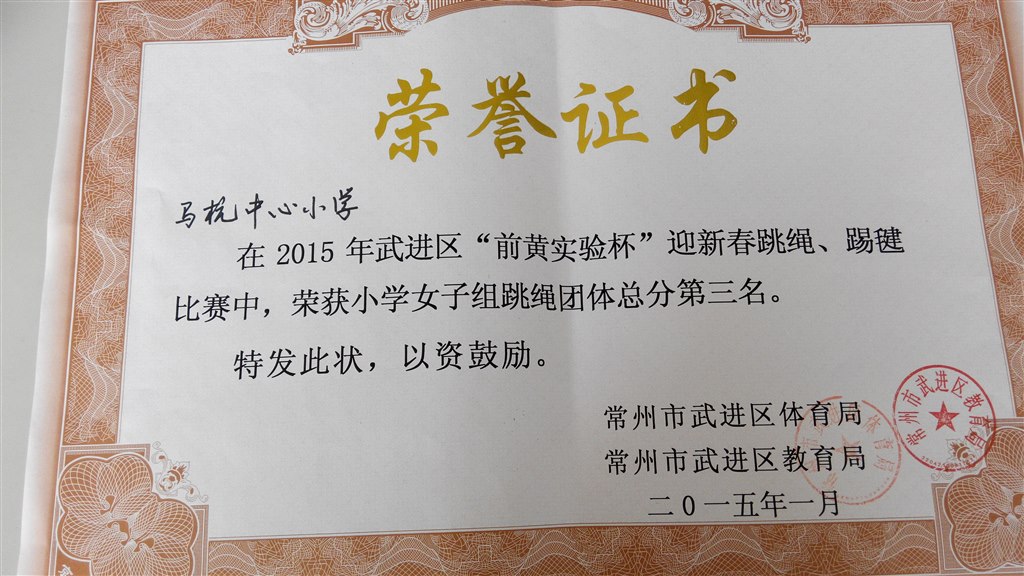 荣誉证书
马杭中心小学
在 2015 年武进区“前黄实验杯”迎新春跳绳、踢毽
比赛中，荣获小学女子组跳绳团体总分第三名。
特发此状，以资鼓励。
常州市武进区体育局
常州市武进区教育局
二0一五年一月
常州市武进区教育局